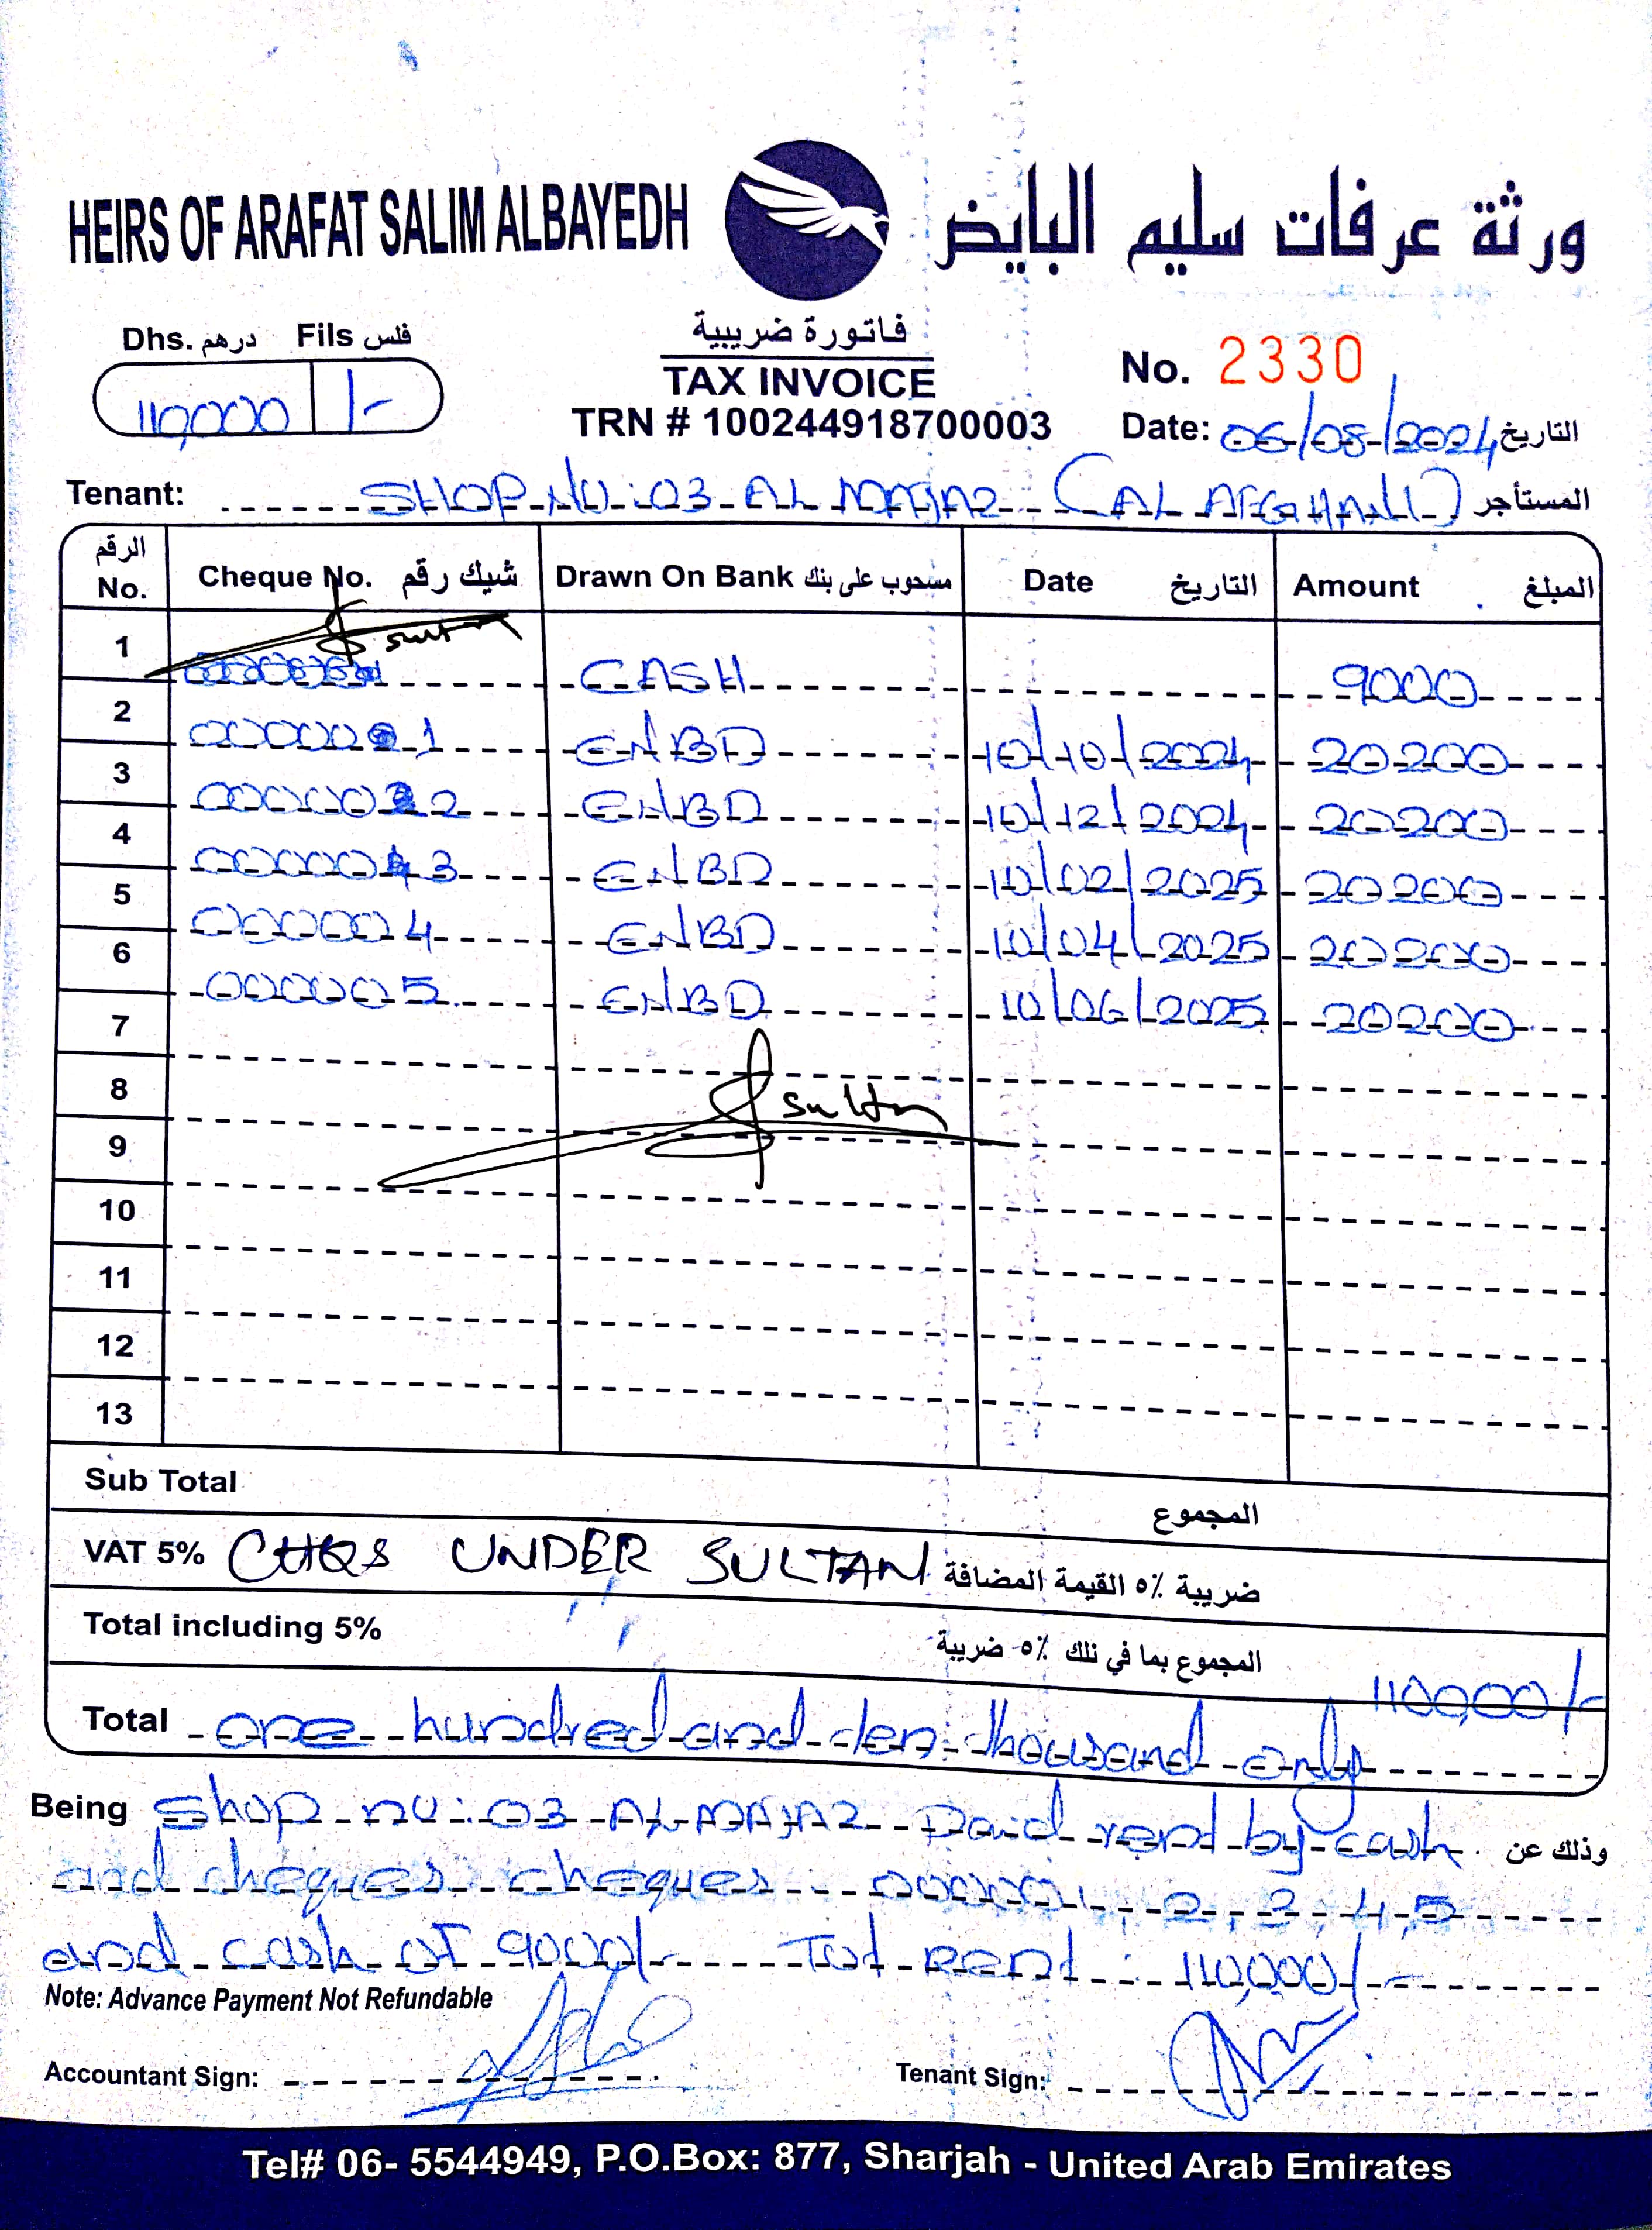 HEIRS OF ARAFAT SALIM ALBAYEDH ورثة عرفات سليم البايض
Dhs. درهم Fils فلس
110,000 /-
فاتورة ضريبية
TAX INVOICE
TRN # 100244918700003
No. 2330
Date: 06/08/2024 التاريخ
Tenant: SHOP NO: 03 AL MAJAZ (AL AFGHANI) المستأجر
الرقم No. Cheque No. شيك رقم Drawn On Bank مسحوب على بنك Date التاريخ Amount المبلغ
Sultan
1 CASH 9000
2 000001 ENBD 10/10/2024 20200
3 000002 ENBD 10/12/2024 20200
4 000003 ENBD 10/02/2025 20200
5 000004 ENBD 10/04/2025 20200
6 000005 ENBD 10/06/2025 20200
7
8 Sultan
9
10
11
12
13
Sub Total المجموع
VAT 5% CHQS UNDER SULTAN ضريبة ٥٪ القيمة المضافة
Total including 5% المجموع بما في ذلك ٥٪ ضريبة 110,000/-
Total one hundred and ten thousand only
Being Shop no: 03 AL MAJAZ Paid rent by cash وذلك عن
and cheques cheques 000001, 2, 3, 4, 5
and cash of 9000/- Tot rent: 110,000/-
Note: Advance Payment Not Refundable
Accountant Sign: Tenant Sign:
Tel# 06- 5544949, P.O.Box: 877, Sharjah - United Arab Emirates